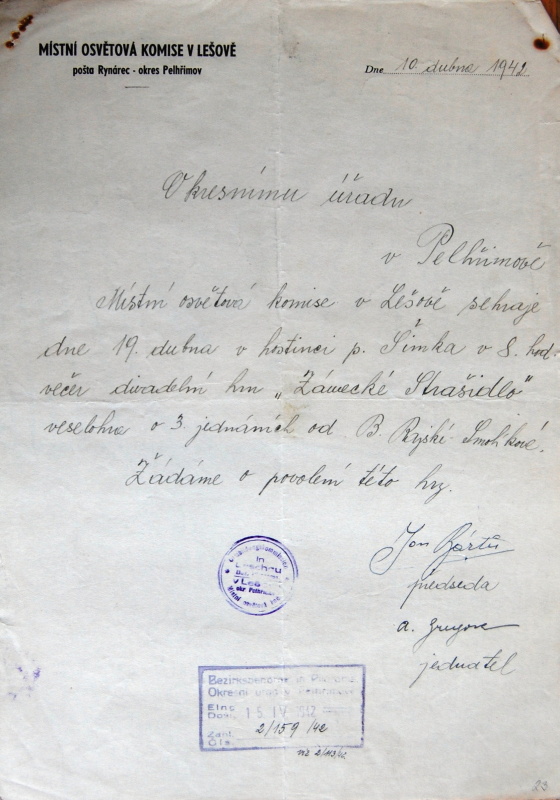 MÍSTNÍ OSVĚTOVÁ KOMISE V LEŠOVĚ
pošta Rynárec - okres Pelhřimov
Dne 10. dubna 1942
Okresnímu úřadu
v Pelhřimově
Místní osvětová komise v Lešově sehraje
dne 19. dubna v hostinci p. Šimka v 8. hod
večer divadelní hru „Zámecké Strašidlo"
veselohra o 3. jednáních od B. Ryjské Smolkové.
Žádáme o povolení této hry.
Jan Bártů
předseda
a.
jednatel
in
v Leš
okr. Pelhřimov
Místní osvětová
Bezirksbehörde in
Okresní úřad v Pelhřimově
Eing.
Došlo 15. IV. 1942
Zahl
Čís. 2/159/42
viz 2/113/42